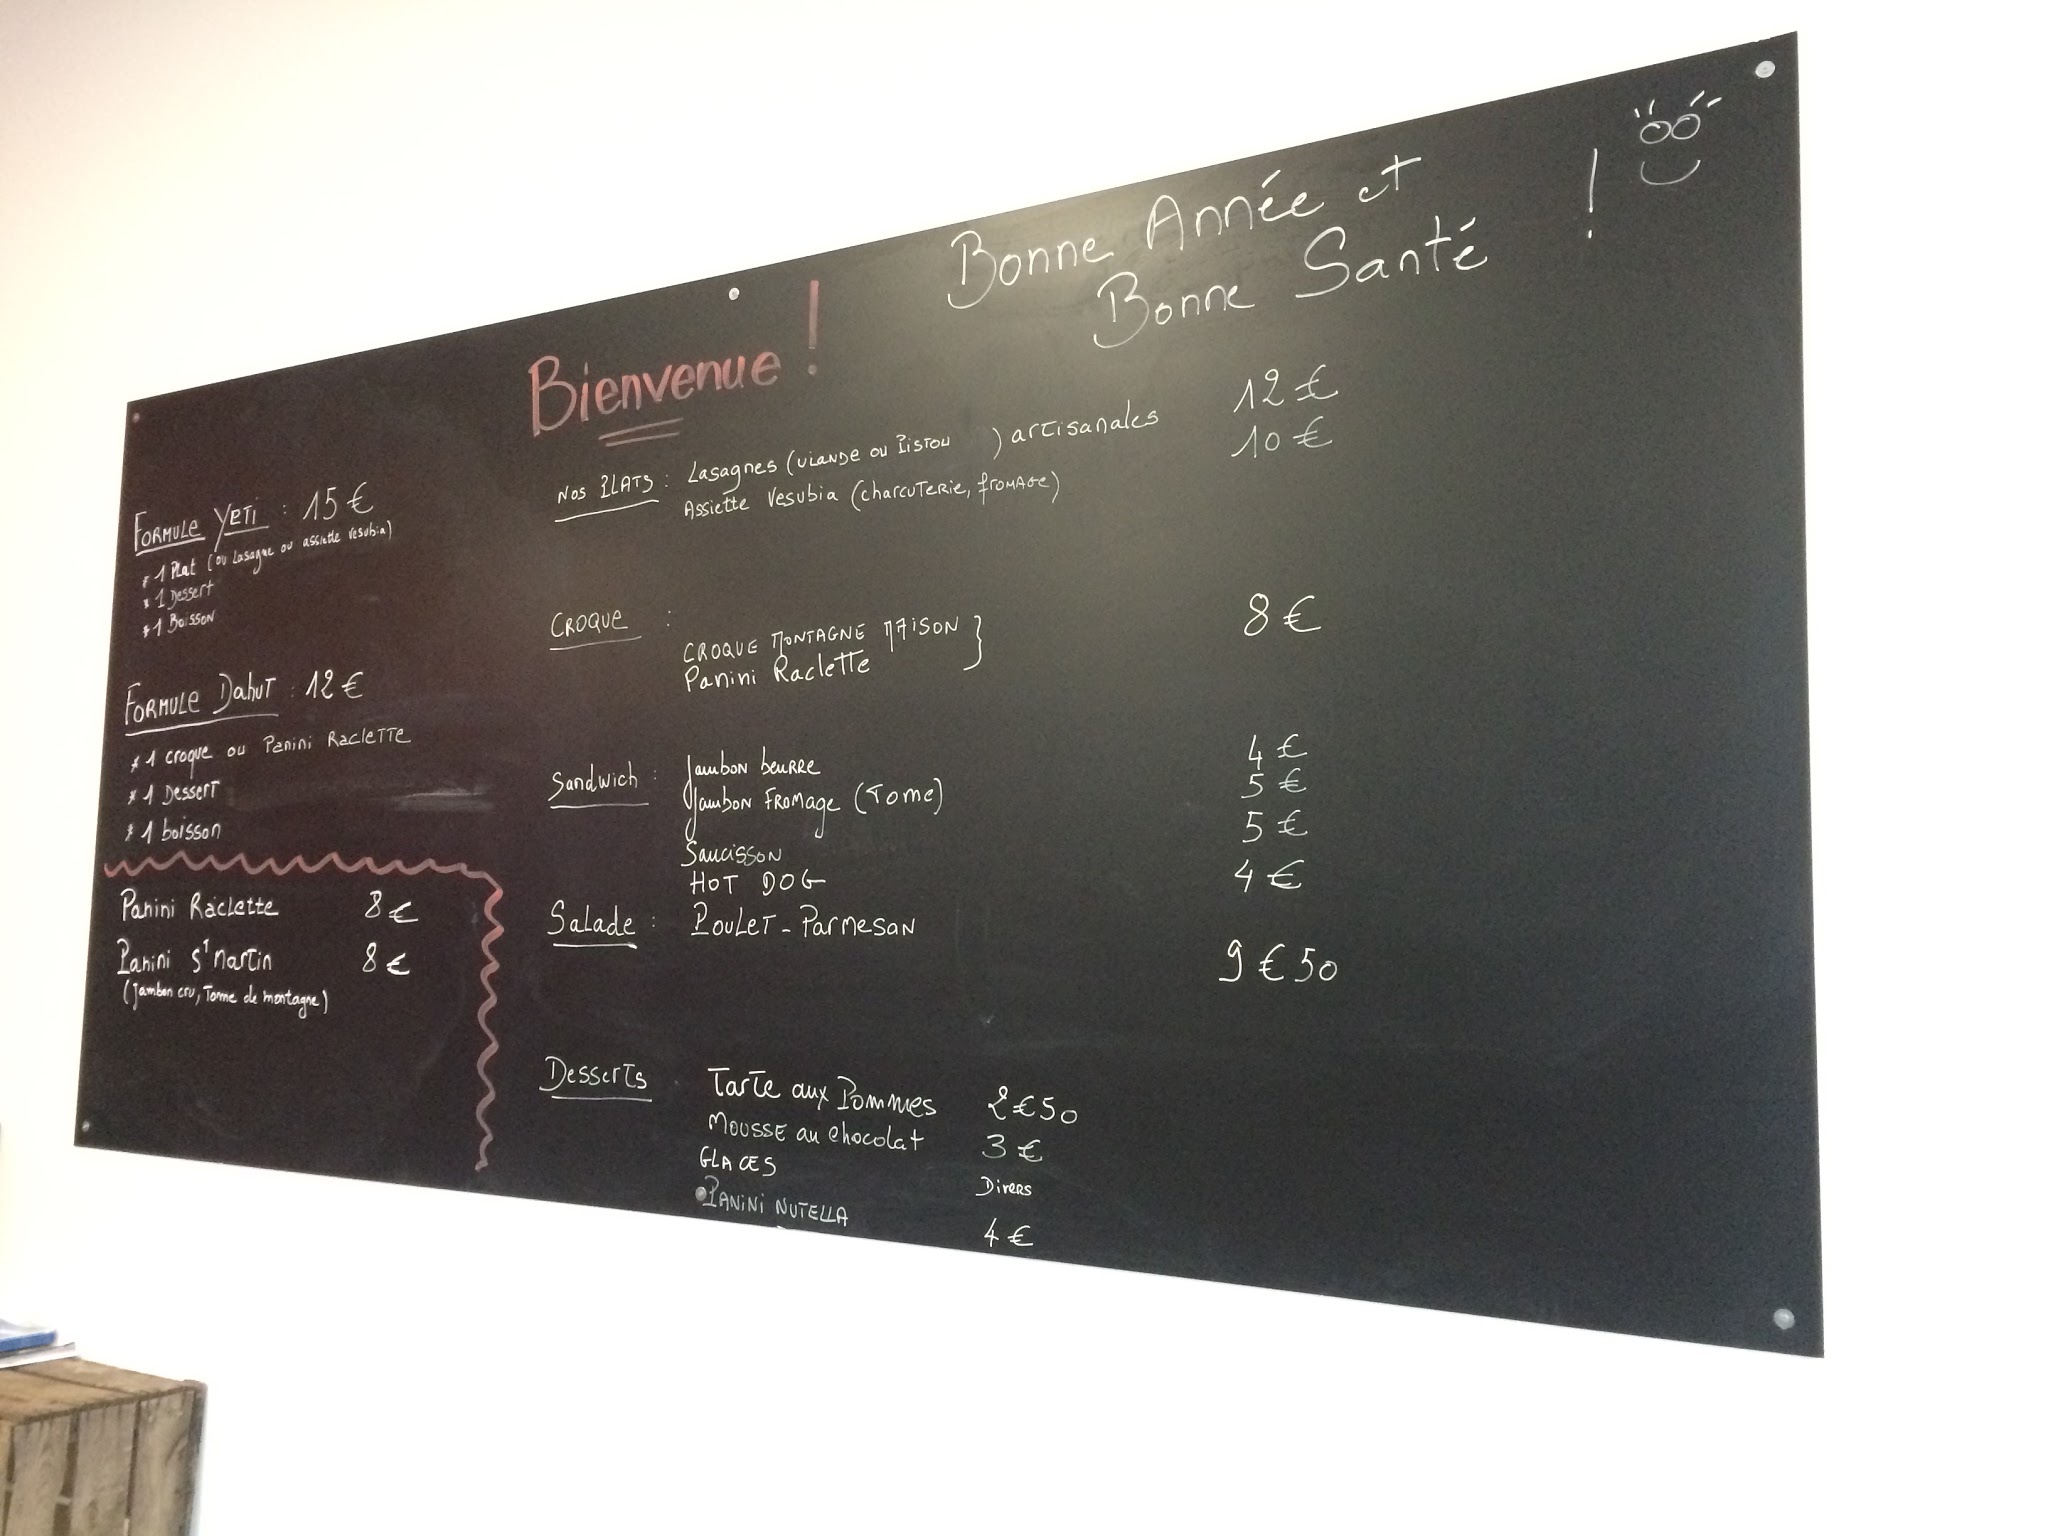 Bonne Année et
Bonne Santé !
Bienvenue !
Formule Yeti : 15 €
* 1 Plat (ou Lasagne ou assiette vesubia)
* 1 Dessert
* 1 Boisson
Formule Dahut : 12 €
* 1 croque ou Panini Raclette
* 1 Dessert
* 1 boisson
Panini Raclette 8 €
Panini St Martin 8 €
(Jambon cru, Tomme de montagne)
Nos PLATS : Lasagnes (VIANDE ou PISTOU ) artisanales 12 €
Assiette Vesubia (charcuterie, fromage) 10 €
CROQUE :
CROQUE MONTAGNE MAISON } 8 €
Panini Raclette
Sandwich : Jambon beurre 4 €
Jambon Fromage (Tome) 5 €
Saucisson 5 €
HOT DOG 4 €
Salade : Poulet - Parmesan 9 € 50
Desserts Tarte aux Pommes 2 € 50
Mousse au chocolat 3 €
GLACES Divers
PANINI NUTELLA 4 €